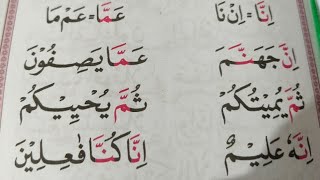 اِنَّا = اِنْ نَا عَمَّا = عَمْ مَا
اِنَّ جَهَنَّمَ عَمَّا يَصِفُوْنَ
ثُمَّ يُمِيْتُكُمْ ثُمَّ يُحْيِيْكُمْ
اِنَّهٗ عَلِيْمٌ اِنَّا كُنَّا فٰعِلِيْنَ